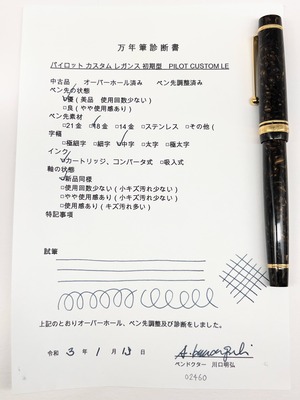 万年筆診断書
パイロット カスタム レガンス 初期型　PILOT CUSTOM LE
中古品　オーバーホール済み　ペン先調整済み
ペン先の状態
☑優(美品　使用回数少ない)
□良(やや使用感あり)
ペン先素材
□21金　☑18金　□14金　□ステンレス　□その他(
字幅
□極細字　□細字　☑中字　□太字　□極太字
インク
☑カートリッジ、コンバータ式　□吸入式
軸の状態
☑新品同様
□使用回数少ない(小キズ汚れ少ない)
□やや使用感あり(小キズ汚れ少ない)
□使用感あり(キズ汚れ多い)
特記事項
試筆
上記のとおりオーバーホール、ペン先調整及び診断をしました。
令和 3 年 1 月 13 日
ペンドクター　川口明弘
02460